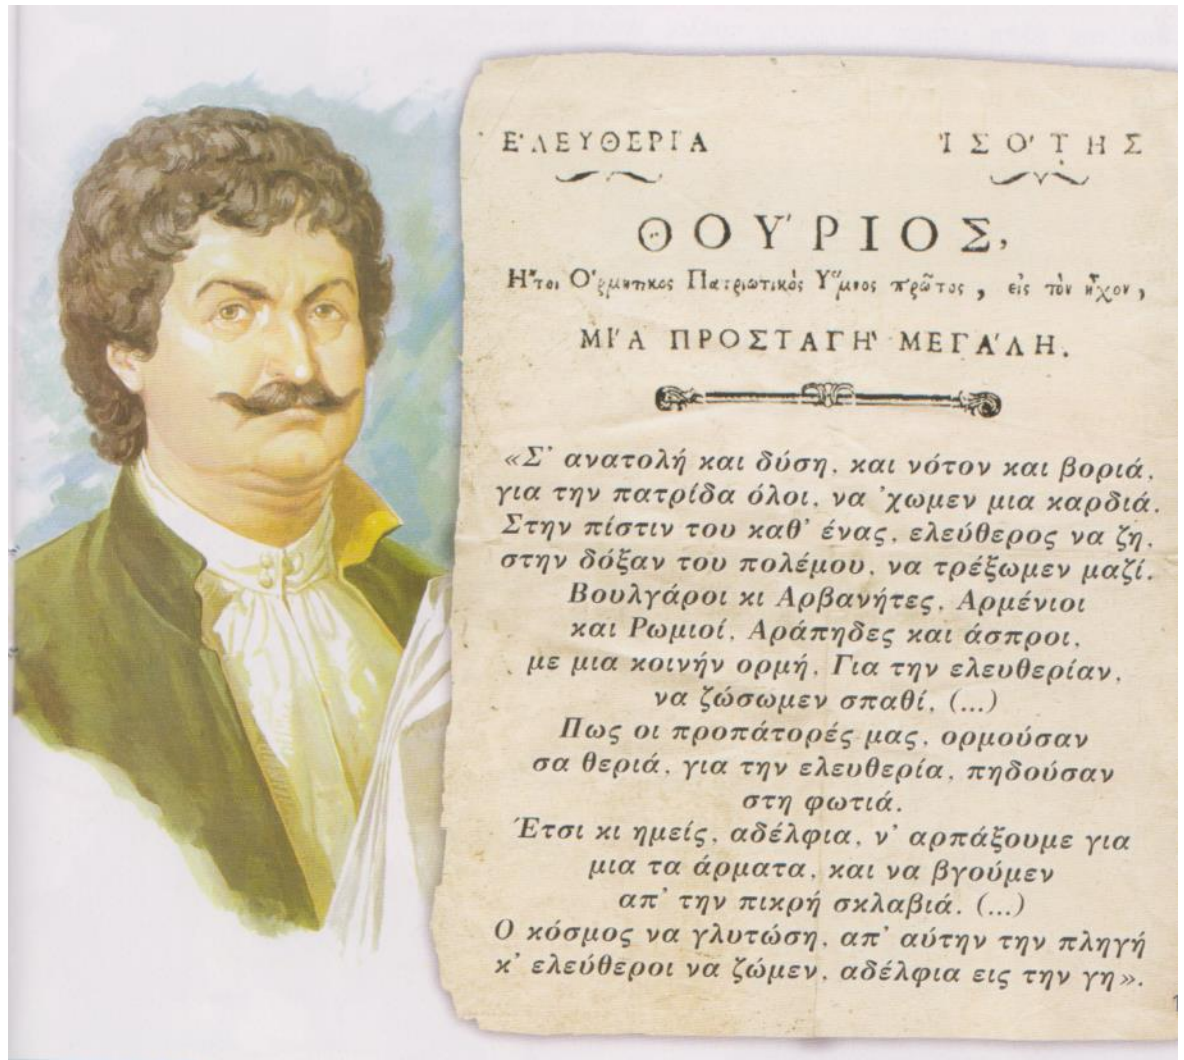 Ε'ΛΕΥΘΕΡΙΑ Ἰ Σ Ο' Τ Η Σ
ΘΟΥ'ΡΙΟΣ,
Η῎τοι Ο῾ρμητικος Πατριωτικὸς Υ῞μνος πρῶτος, εἰς τὸν ἦχον,
ΜΙ'Α ΠΡΟΣΤΑΓΗ' ΜΕΓΑ'ΛΗ.
«Σ' ανατολή και δύση, και νότον και βοριά,
για την πατρίδα όλοι, να 'χωμεν μια καρδιά.
Στην πίστιν του καθ' ένας, ελεύθερος να ζη,
στην δόξαν του πολέμου, να τρέξωμεν μαζί.
Βουλγάροι κι Αρβανήτες, Αρμένιοι
και Ρωμιοί, Αράπηδες και άσπροι,
με μια κοινήν ορμή, Για την ελευθερίαν,
να ζώσωμεν σπαθί, (...)
Πως οι προπάτορές μας, ορμούσαν
σα θεριά, για την ελευθερία, πηδούσαν
στη φωτιά.
Έτσι κι ημείς, αδέλφια, ν' αρπάξουμε για
μια τα άρματα, και να βγούμεν
απ' την πικρή σκλαβιά. (...)
Ο κόσμος να γλυτώση, απ' αύτην την πληγή
κ' ελεύθεροι να ζώμεν, αδέλφια εις την γη».